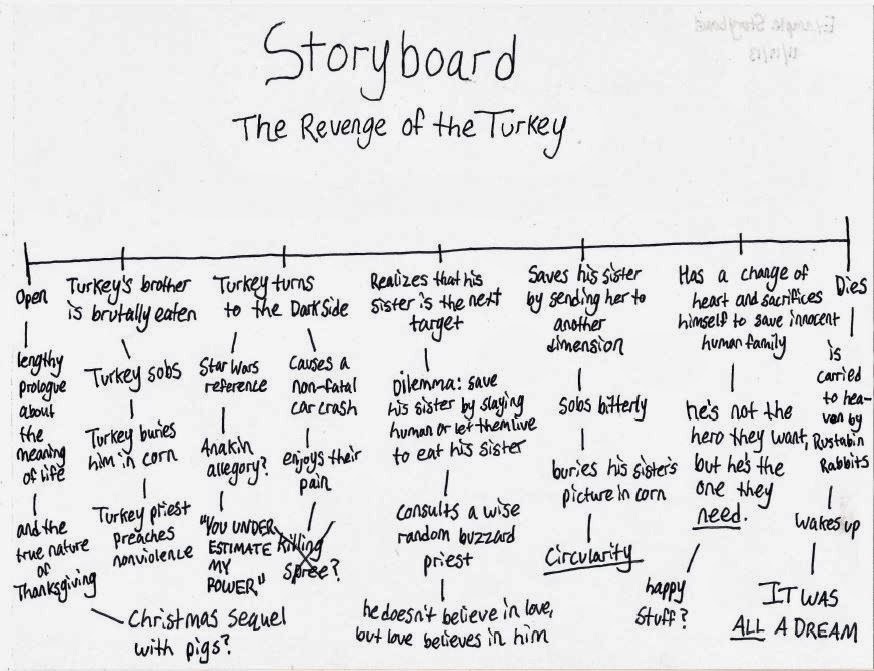 Example Storyboard
11/19/13
Storyboard
The Revenge of the Turkey
Open
lengthy
prologue
about
the
meaning
of life
and the
true nature
of
Thanksgiving
Christmas sequel
with pigs?
Turkey's brother
is brutally eaten
Turkey sobs
Turkey buries
him in corn
Turkey priest
preaches
nonviolence
Turkey turns
to the Dark Side
Star Wars
reference
Anakin
allegory?
"YOU UNDER
ESTIMATE
MY
POWER"
causes a
non-fatal
car crash
enjoys their
pain
killing
spree?
Realizes that his
sister is the next
target
Dilemma: save
his sister by slaying
human or let them live
to eat his sister
consults a wise
random buzzard
priest
he doesn't believe in love,
but love believes in him
Saves his sister
by sending her to
another
dimension
sobs bitterly
buries his sister's
picture in corn
Circularity
Has a change of
heart and sacrifices
himself to save innocent
human family
he's not the
hero they want,
but he's the
one they
need.
happy
stuff?
Dies
is
carried
to hea-
ven by
Rustabin
Rabbits
wakes up
IT WAS
ALL A DREAM